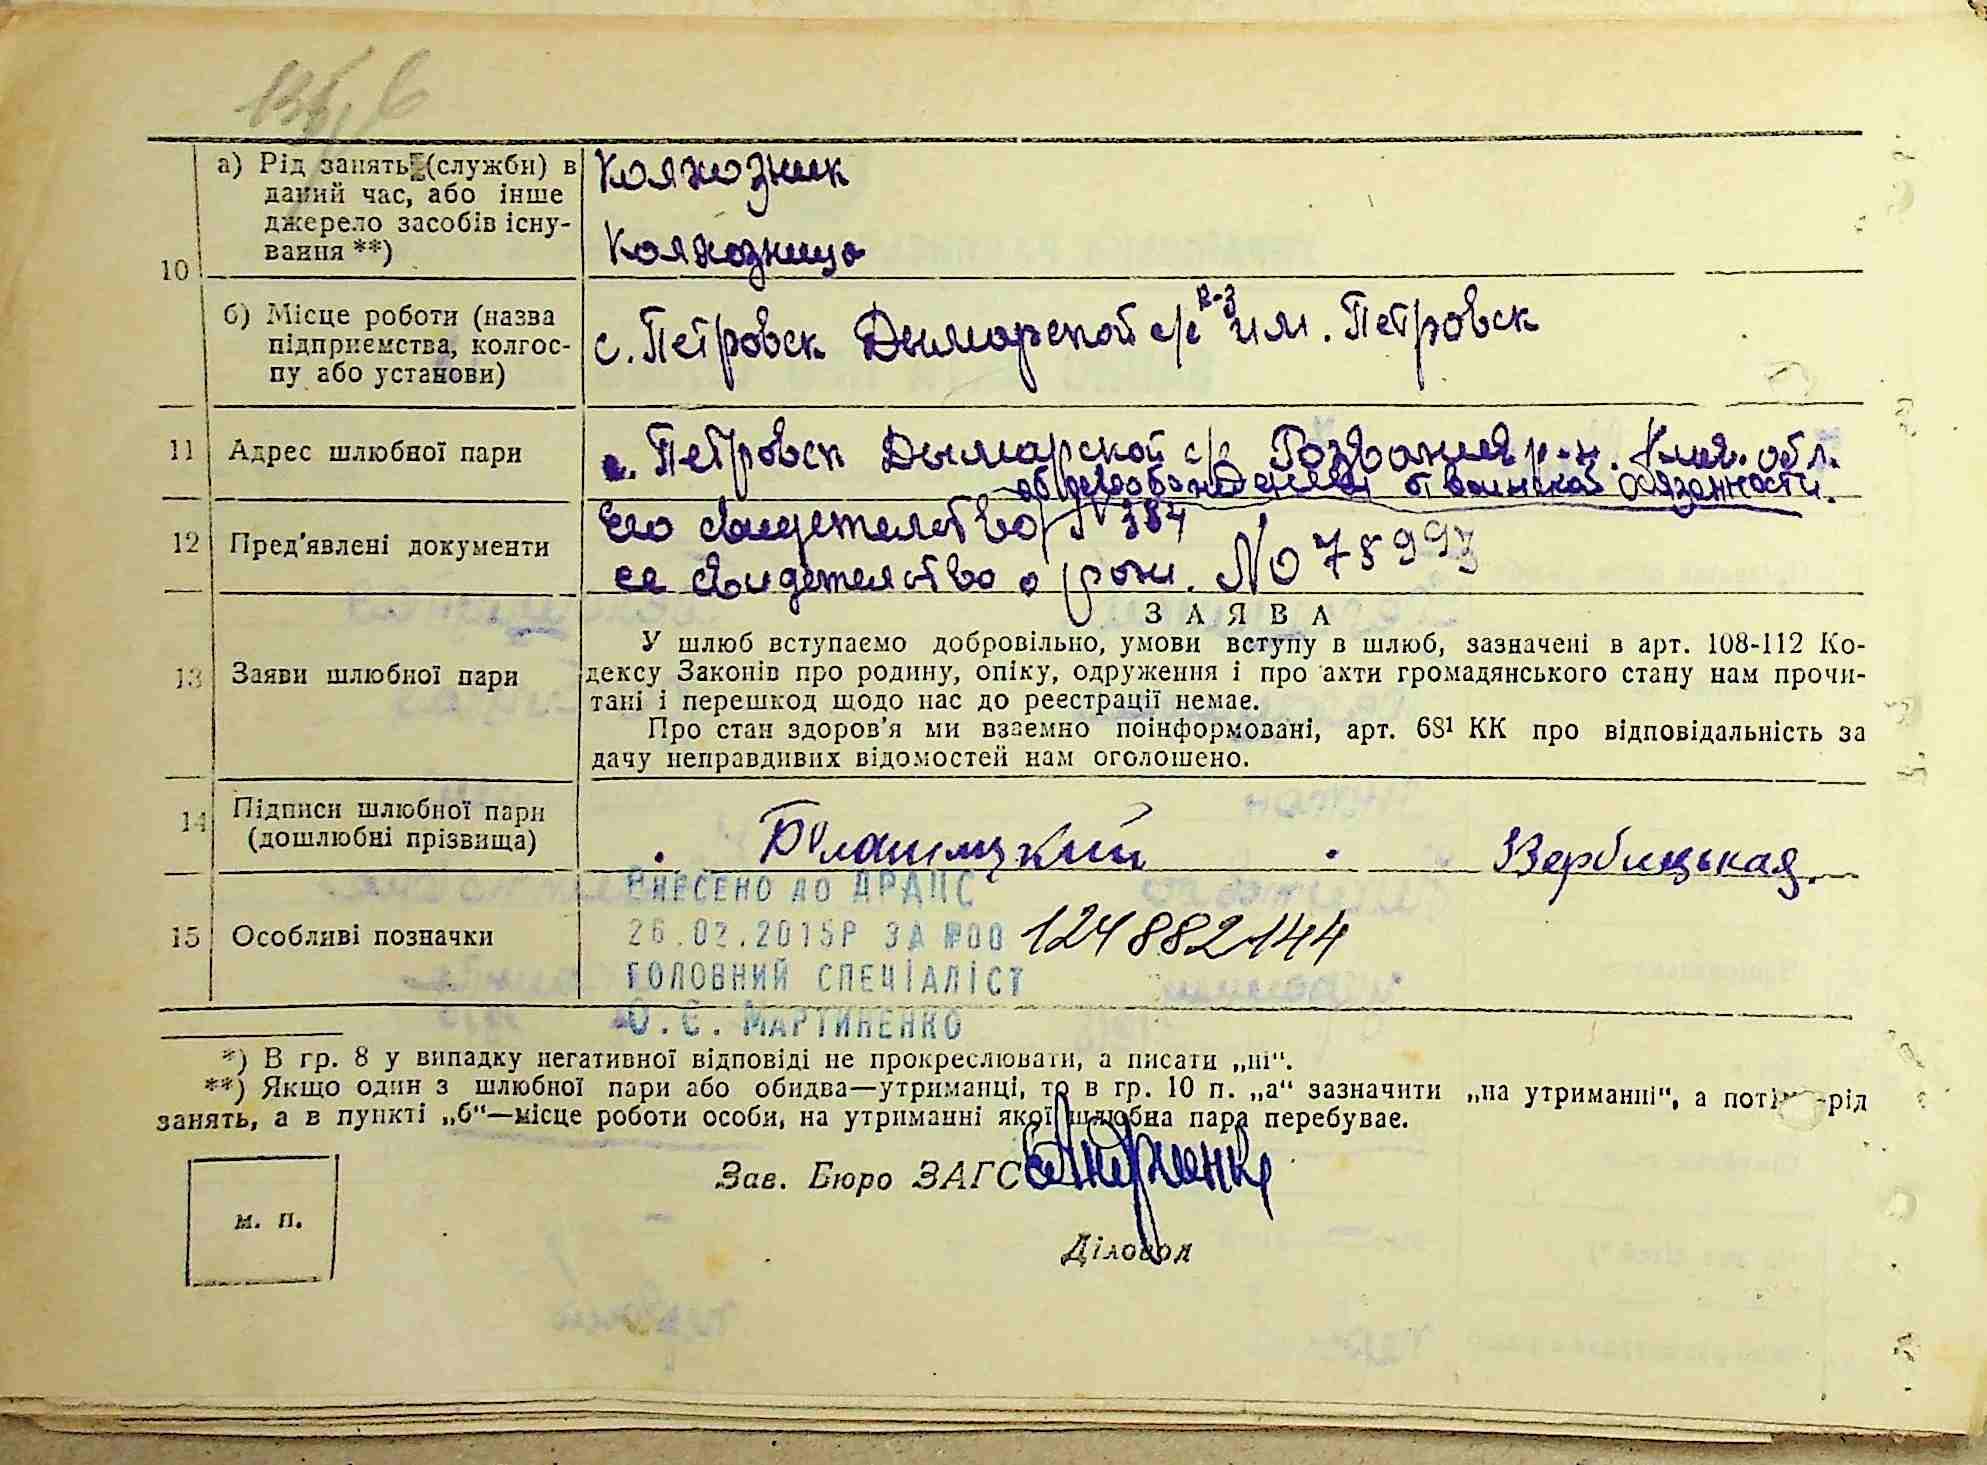 а) Рід занять (служби) в
даний час, або інше
джерело засобів існу-
вання **)
Колхозник
Колхозница
10
б) Місце роботи (назва
підприємства, колгос-
пу або установи)
с. Петровск Дымарской с/с к-з им. Петровск
11 Адрес шлюбної пари
с. Петровск Дымарской с/с Розважия р-н. Киев. обл.
об освобождении от воинской обязанности.
12 Пред'явлені документи
Его свидетельство № 384
ее свидетельство о рож. № 75993
13 Заяви шлюбної пари
ЗАЯВА
У шлюб вступаємо добровільно, умови вступу в шлюб, зазначені в арт. 108-112 Ко-
дексу Законів про родину, опіку, одруження і про акти громадянського стану нам прочи-
тані і перешкод щодо нас до реестрації немае.
Про стан здоров'я ми взаемно поінформовані, арт. 68¹ КК про відповідальність за
дачу неправдивих відомостей нам оголошено.
14 Підписи шлюбної пари
(дошлюбні прізвища)
Білашицкий Вербицькая.
15 Особливі позначки
ВНЕСЕНО ДО ДРАЦС
26.02.2015Р ЗА №00 124882144
ГОЛОВНИЙ СПЕЦІАЛІСТ
О.Є. МАРТИНЕНКО
*) В гр. 8 у випадку негативної відповіді не прокреслювати, а писати „ні“.
**) Якщо один з шлюбної пари або обидва—утриманці, то в гр. 10 п. „а“ зазначити „на утриманні“, а потім—рід
занять, а в пункті „б“—місце роботи особи, на утриманні якої шлюбна пара перебуває.
Зав. Бюро ЗАГС
Діловод
м. п.